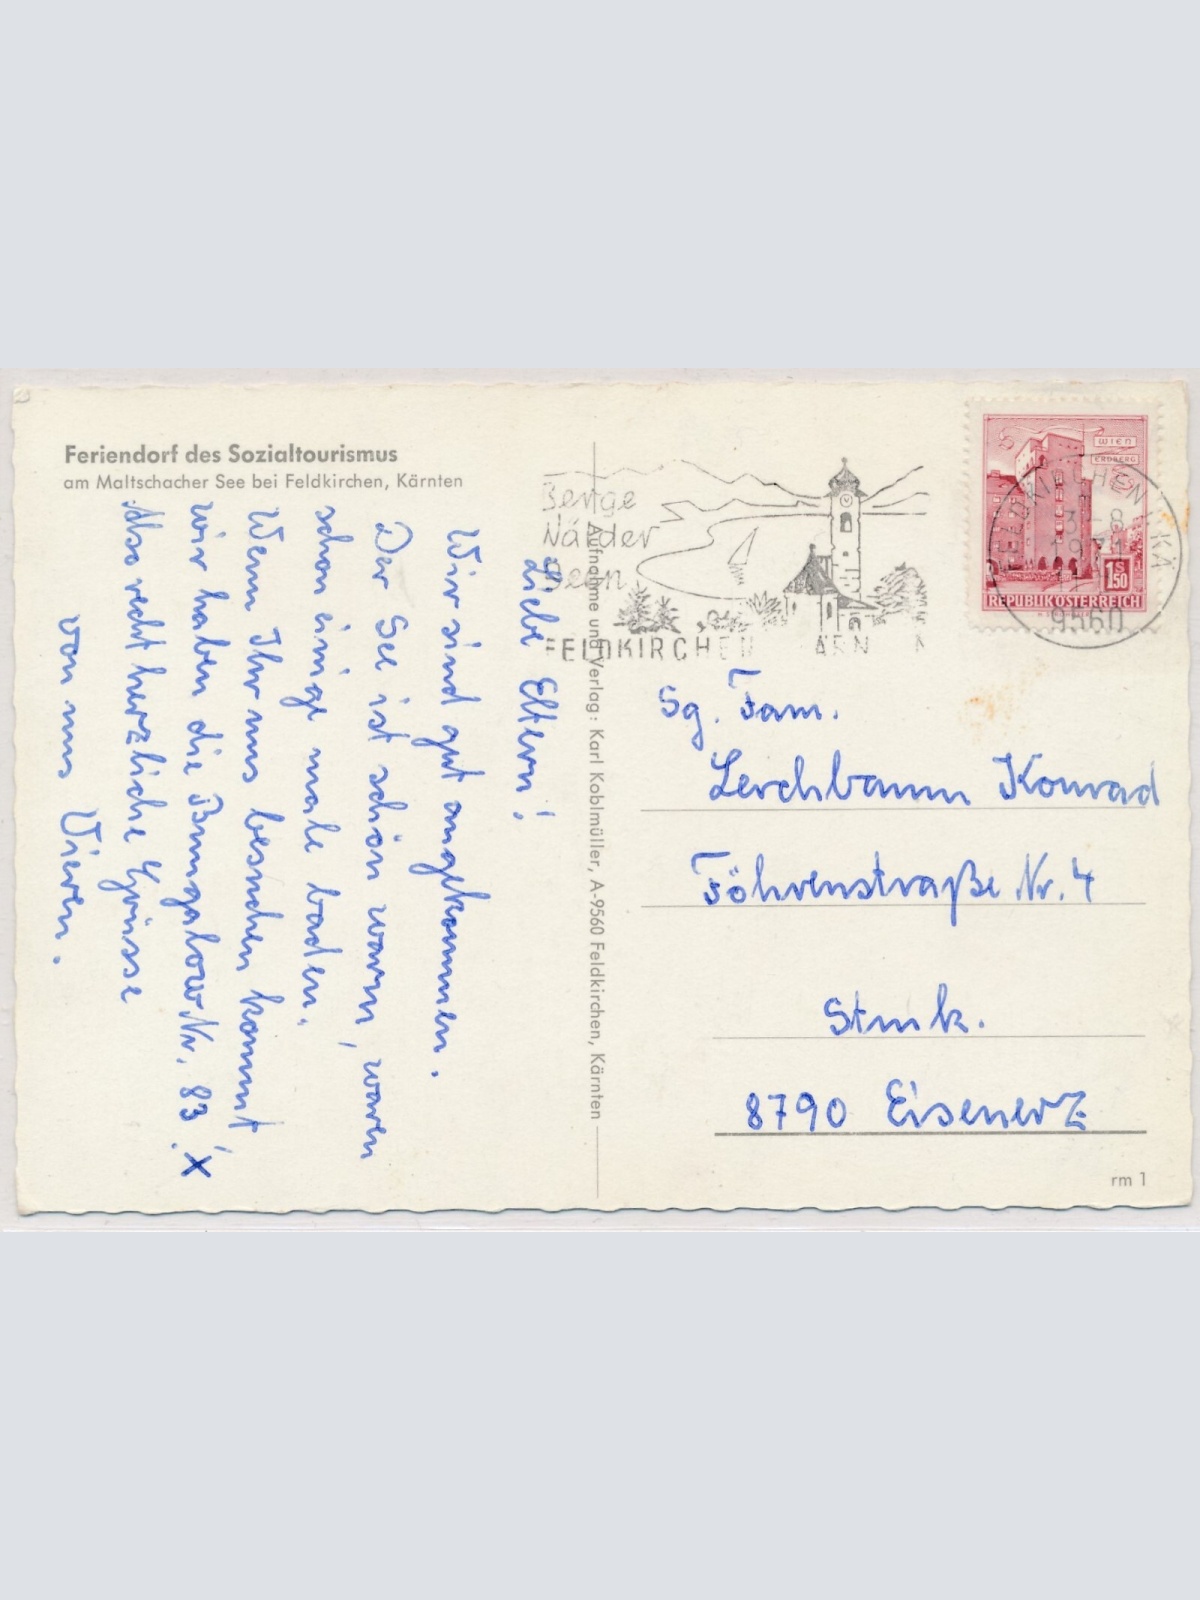 Feriendorf des Sozialtourismus
am Maltschacher See bei Feldkirchen, Kärnten
Liebe Eltern!
Wir sind gut angekommen.
Der See ist schön warm, waren
schon einige male baden.
Wenn Ihr uns besuchen kommt
wir haben die Bungalow Nr. 83! X
Also recht herzliche Grüsse
von uns Vieren.
Aufnahme und Verlag: Karl Koblmüller, A-9560 Feldkirchen, Kärnten
Berge
Wälder
Seen
FELDKIRCHEN KÄRN
WIEN
ERDBERG
S
1.50
REPUBLIK ÖSTERREICH
FELDKIRCHEN I. KÄ
9560
Sg. Fam.
Lerchbaum Konrad
Föhrenstraße Nr. 4
Stmk.
8790 Eisenerz
rm 1